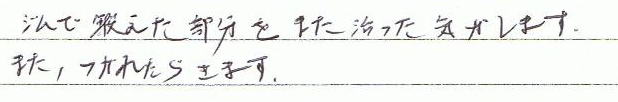 ジムで鍛えた部分をまた治った気がします.
また,つかれたらきます.